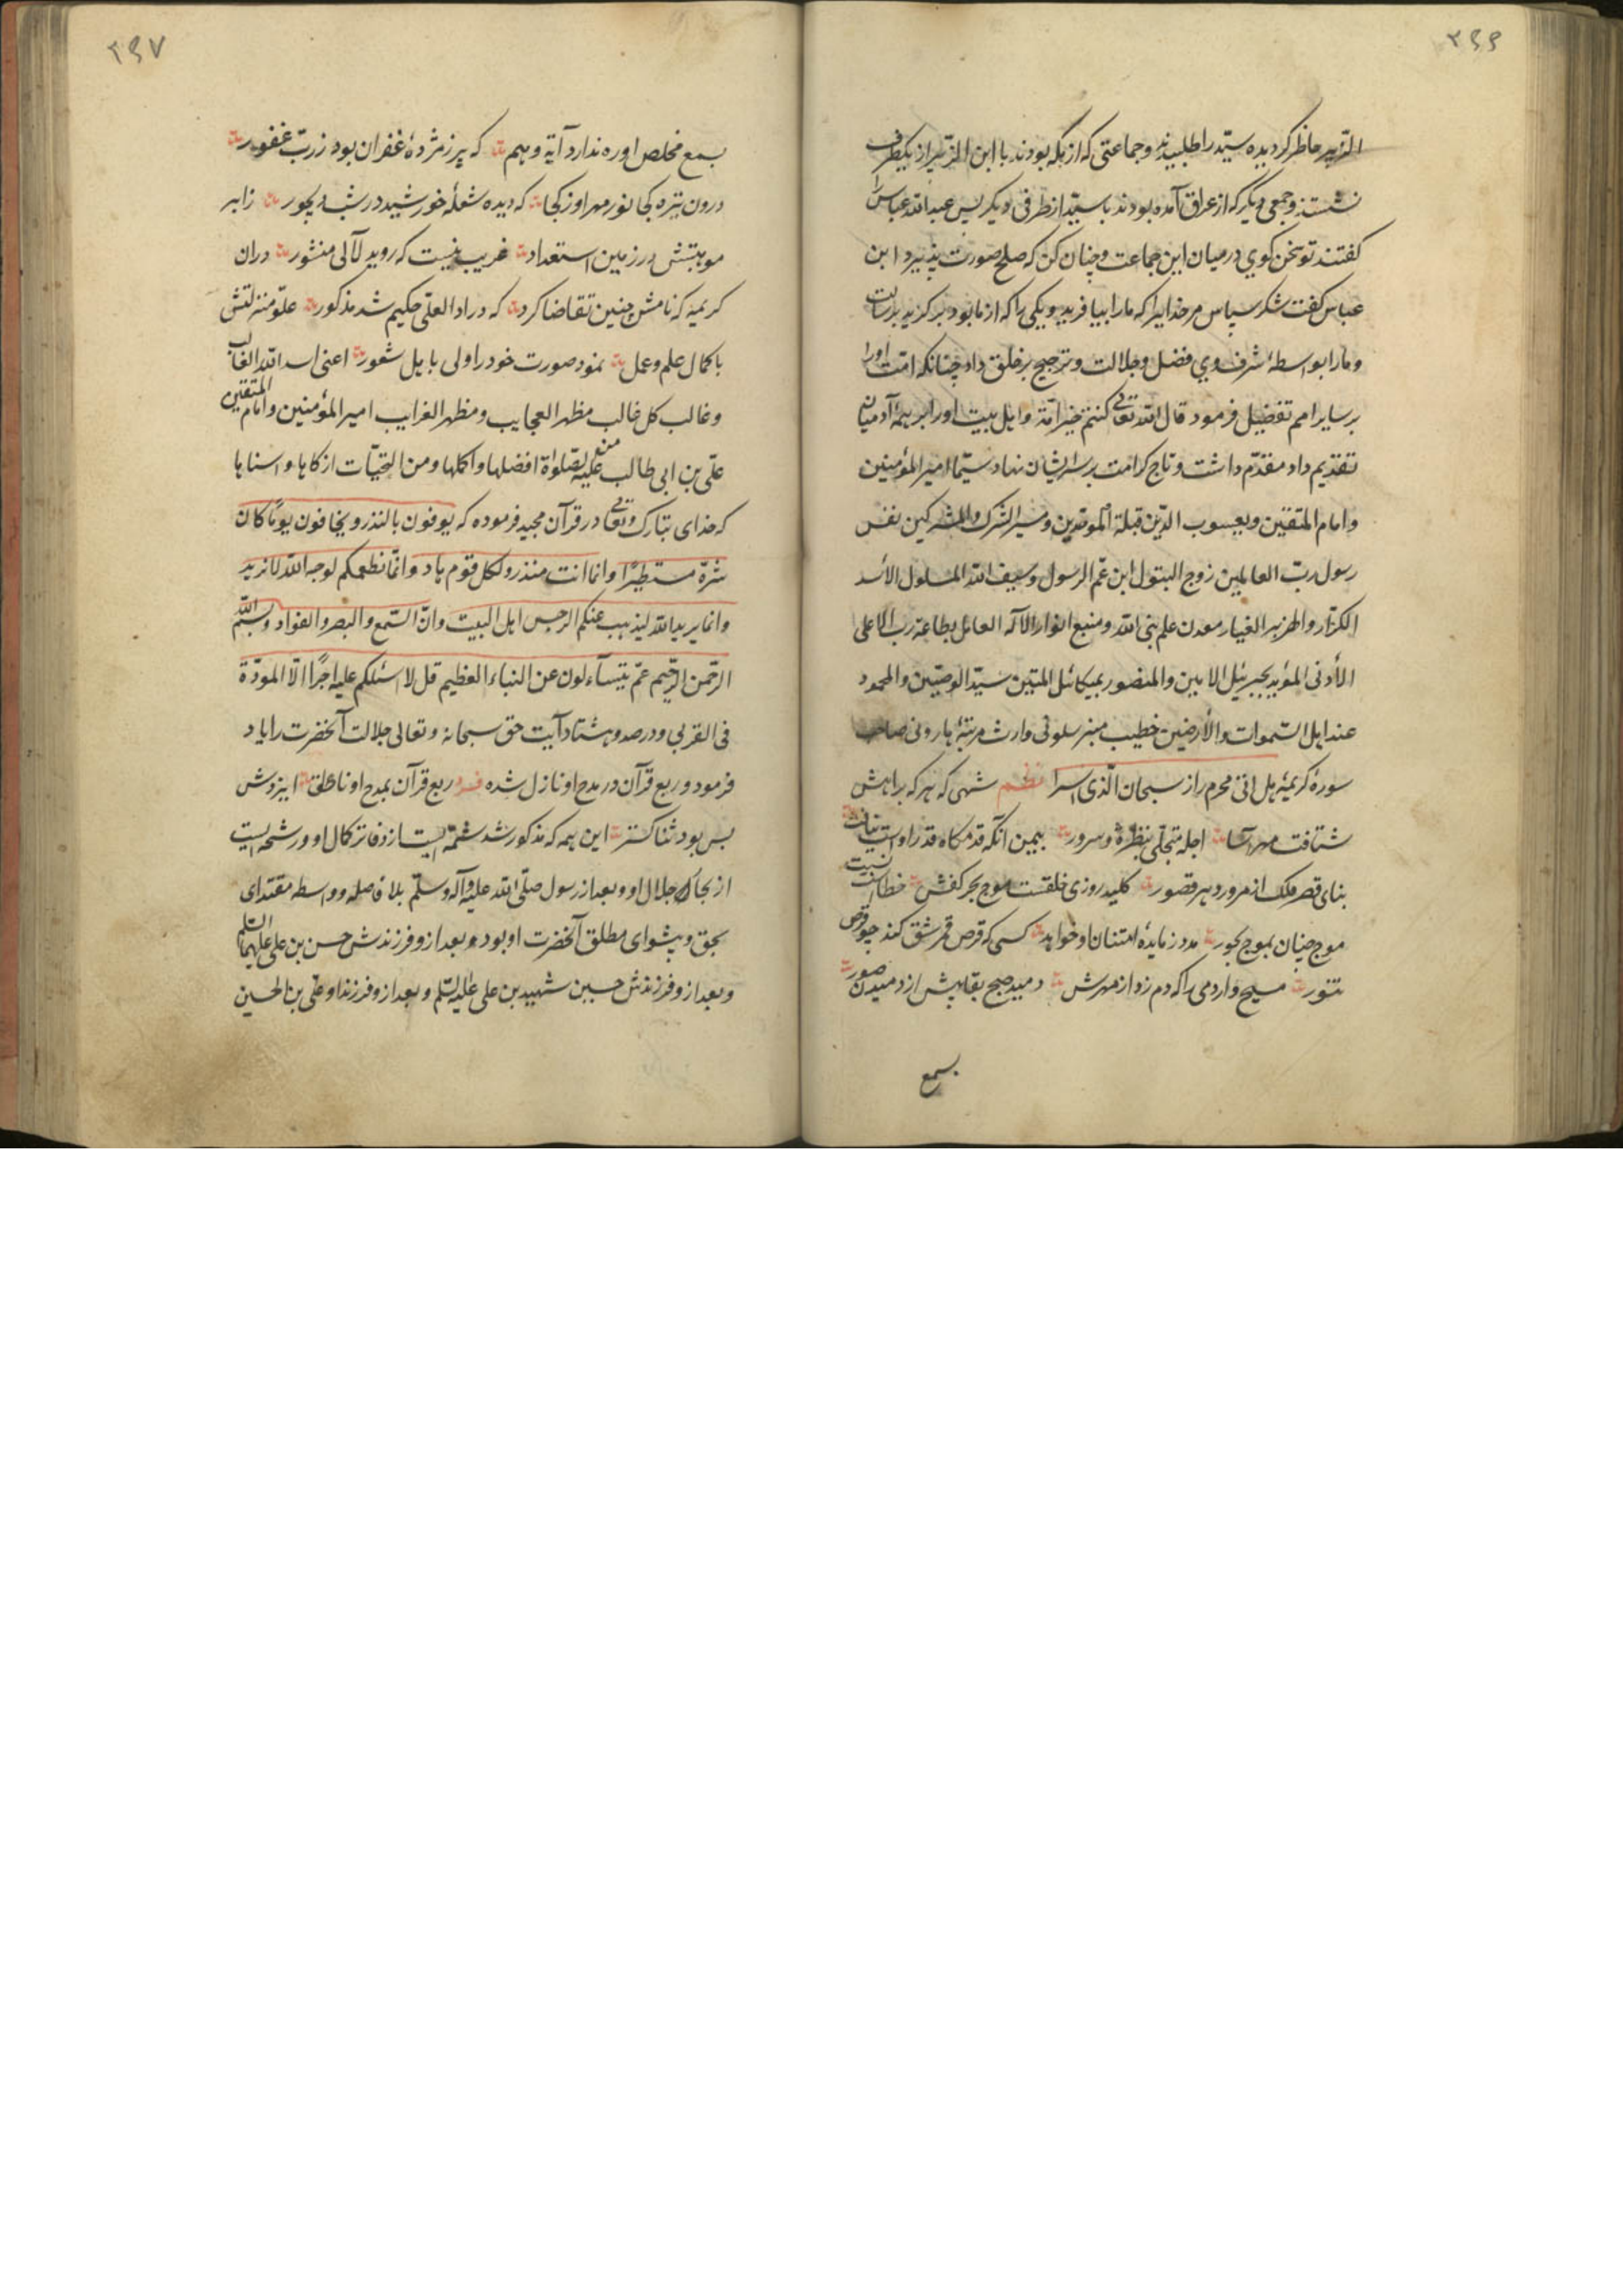 ۳۶۶
الزبیر حاظر کردیده سیّد را طلبیدند و جماعتی که از مکه بودند با ابن الزبیر از یکطرف
نشستند و جمعی دیگر که از عراق آمده بودند با سیّد از طرفی دیگر پس عبد الله عباس را
کفتند تو سخن کوی در میان این جماعت و چنان کن که صلح صورت پذیرد ابن
عباس کفت شکر سپاس مر خدایرا که ما را بیافرید و یکی را که از ما بود برکزید برسالت
و ما را بواسطهٔ شرف وی فضل و جلالت و ترجیح بر خلق داد چنانکه امّت او را
بر سایر امم تفضیل فرمود قال الله تعالی کنتم خیر امّة و اهل بیت او را بر همهٔ آدمیان
تقدیم داد مقدّم داشت و تاج کرامت بر سر ایشان نهاد سیّما امیر المؤمنین
و امام المتقین و یعسوب الدّین قبلة الموحّدین و الشرک و المشرکین نفس
رسول ربّ العالمین زوج البتول ابن عمّ الرسول و سیف الله المسلول الأسد
الکرّار و الغیار معدن علم نبی الله و منبع انوار الآله العامل بطاعة ربّ الأعلی
الأدنی المؤید بجبرئیل الامین و المنصور بمیکائل المتین سیّد الوصیّین و المحمود
عند اهل السّموات و الأرضین خطیب منبر سلونی وارث مرتبهٔ هارونی صاحب
سورهٔ کریمهٔ هل اتی محرم راز سبحان الّذی اسرا نظم شهی که هر که براهش
شتافت مهر آسا اجله متجلّی بنظرة و سرور بیمن آنکه قدمکاه قدر اوست
بنای قصر فلک از مرور دهر قصور کلید روزی خلقست موج بحر کفش خطا
موج چنان بموج بحور مدد ز مایدهٔ امتنان او خواهد کسی که قرص قمر شق کند چو قرص
تنور مسیح وار دمی را که دم زد از مهرش دمید صبح بقایش از دمیدن صور
بسمع
۳۶۷
بسمع مخلص او ره ندارد آیة وهم که پر ز مژدهٔ غفران بود ز ربّ غفور
درون تیره کجا نور مهر او ز کجا که دیده شعلهٔ خورشید در شب دیجور ز ابر
موهبتش در زمین استعداد غریب نیست که روید لآلی منثور در ان
کریمه که نامش چنین تقاضا کرد که در اداء لعلّی حکیم شد مذکور علوّ منزلتش
با کمال علم و عمل نمود صورت خود را ولی باهل شعور اعنی اسد الله الغالب
و غالب کل غالب مظهر العجایب و منظهر الغرایب امیر المؤمنین و امام المتّقین
علّی بن ابی طالب علیه من الصّلواة افضلها و اکملها و من التحیّات ازکاها و اسناها
که خدای تبارک و تعالی در قرآن مجید فرموده که یوفون بالنذر و یخافون یومًا کان
شرّه مستطیرًا و انما انت منذر و لکل قوم هاد و انّما نطعمکم لوجه الله لا نرید
و انما یرید الله لیذهب عنکم الرجس اهل البیت و انّ السّمع و البصر و الفواد و بسم الله
الرّحمن الرّحیم عمّ یتسآءلون عن النباء العظیم قل لا اسئلکم علیه اجرًا الّا المودّة
فی القربی و در صد و هشتاد آیت حق سبحانه و تعالی جلالت آنحضرت را یاد
فرمود و ربع قرآن در مدح او نازل شده فرد ربع قرآن بمدح او ناطق ایزدش
بس بود ثنا کستر این همه که مذکور شد شمّه ایست از دفاتر کمال او و رشحه ایست
از بحار جلال او و بعد از رسول صلّی الله علیه و آله و سلّم بلا فاصله و واسطه مقتدای
بحق و پیشوای مطلق آنحضرت او بود و بعد از و فرزندش حسن بن علی علیهما السّلم
و بعد از و فرزندش حسین شهید بن علی علیه السّلم و بعد از و فرزند او علی بن الحسین